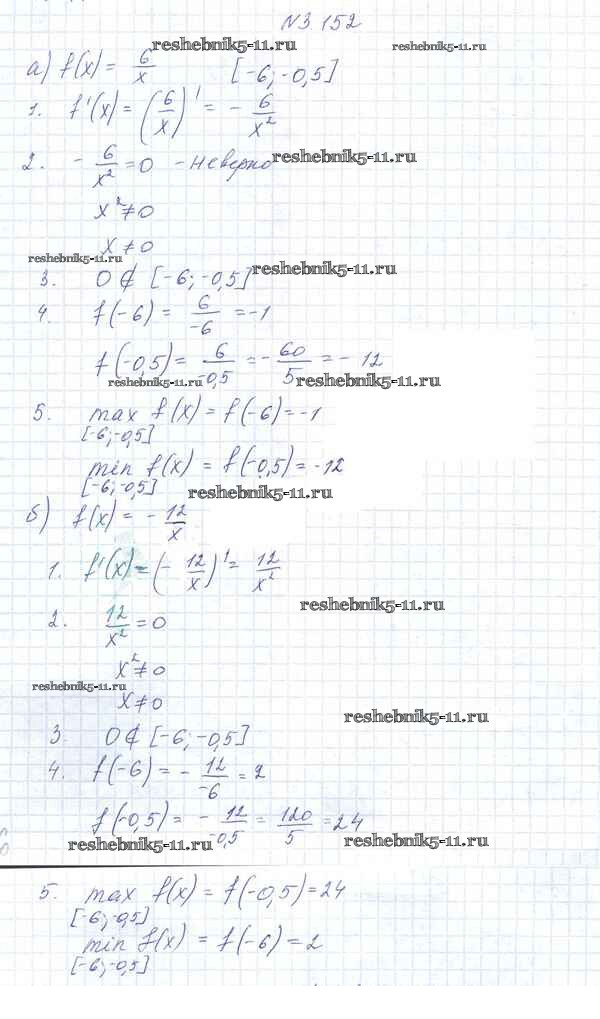 N 3.152
reshebnik5-11.ru reshebnik5-11.ru
а) f(x) = 6/x [-6; -0,5]
1. f'(x) = (6/x)' = - 6/x²
2. - 6/x² = 0 - неверно reshebnik5-11.ru
x² ≠ 0
x ≠ 0
reshebnik5-11.ru
3. 0 ∉ [-6; -0,5] reshebnik5-11.ru
4. f(-6) = 6/-6 = -1
f(-0,5) = 6/-0,5 = - 60/5 = - 12
reshebnik5-11.ru reshebnik5-11.ru
5. max f(x) = f(-6) = -1
[-6; -0,5]
min f(x) = f(-0,5) = -12
[-6; -0,5] reshebnik5-11.ru
б) f(x) = - 12/x
1. f'(x) = (- 12/x)' = 12/x²
reshebnik5-11.ru
2. 12/x² = 0
x² ≠ 0
reshebnik5-11.ru
x ≠ 0
reshebnik5-11.ru
3. 0 ∉ [-6; -0,5]
4. f(-6) = - 12/-6 = 2
f(-0,5) = - 12/-0,5 = 120/5 = 24
reshebnik5-11.ru reshebnik5-11.ru
5. max f(x) = f(-0,5) = 24
[-6; -0,5]
min f(x) = f(-6) = 2
[-6; -0,5]